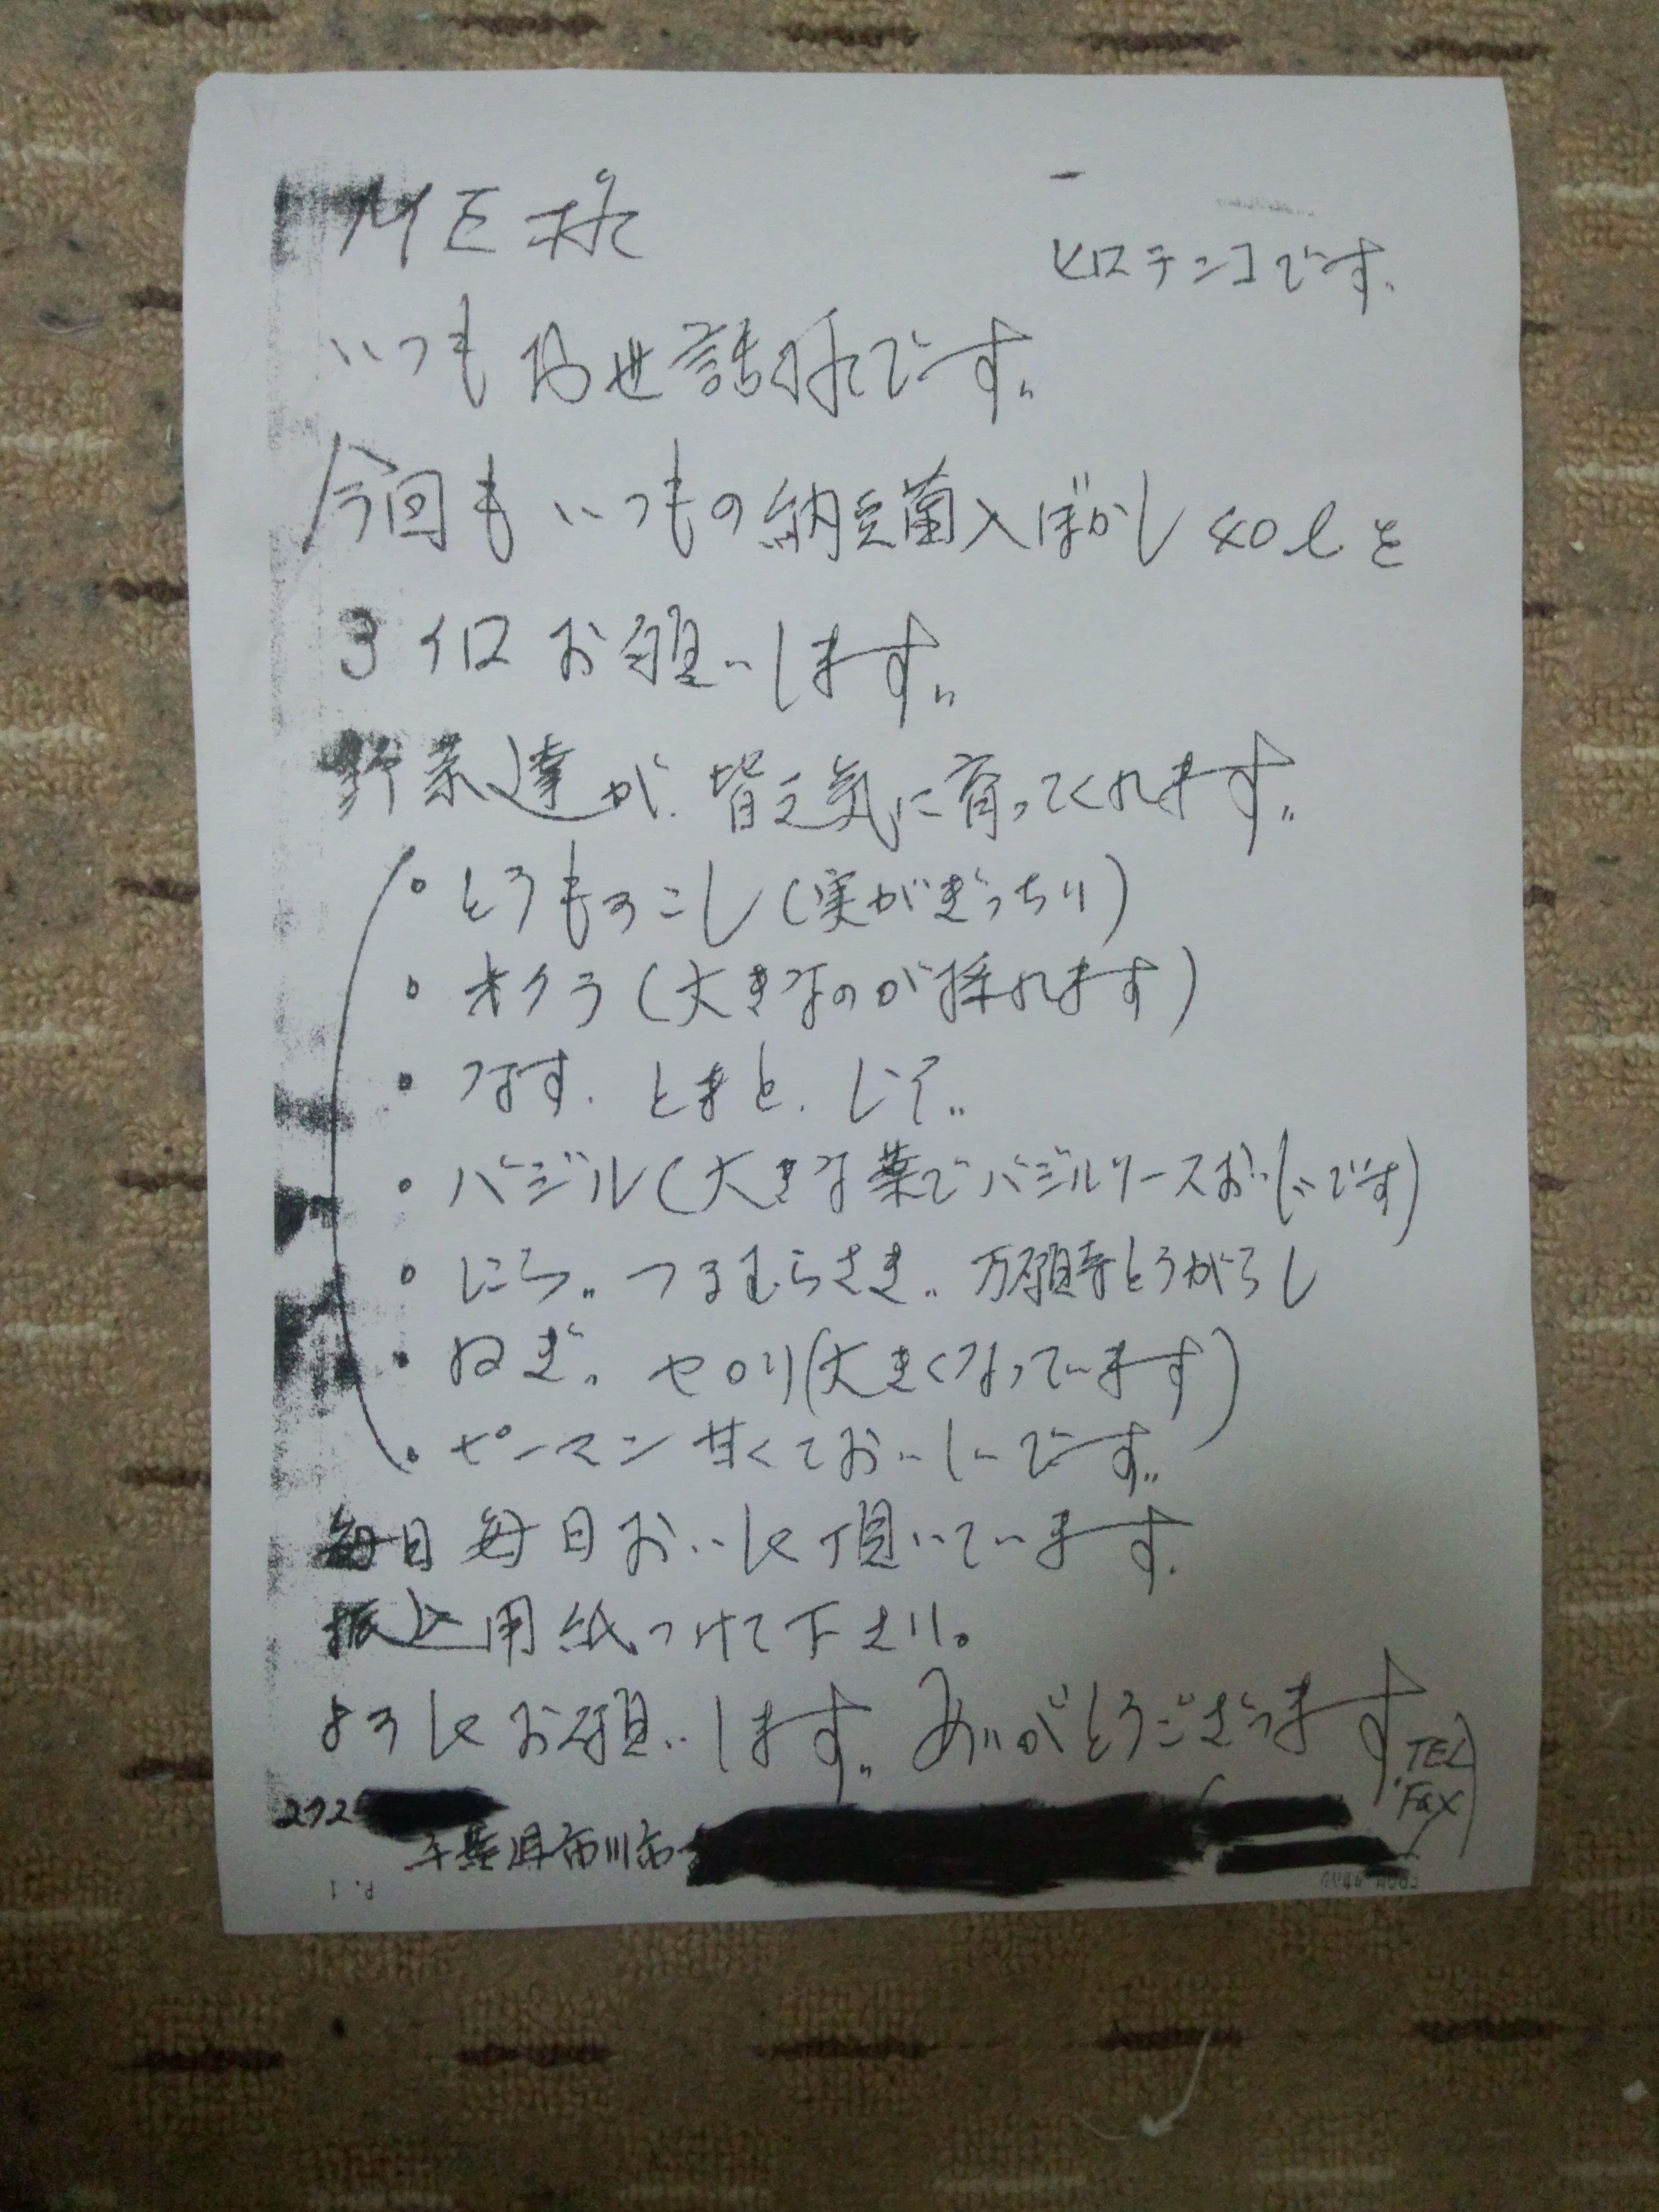 様
ヒロテンコです。
いつもお世話様です。
今回もいつもの納豆菌入ぼかし40ℓを
3個お願いします。
野菜達が、皆元気に育ってくれます。
・とうもろこし(実がぎっちり)
・オクラ(大きなのが採れます)
・なす、ときと、しそ。
・バジル(大きな葉でバジルソースおいしいです)
・にら。つるむらさき。万願寺とうがらし
・ねぎ。セロリ(大きくなっています)
・ピーマン甘くておいしいです。
毎日毎日おいしく頂いています。
振込用紙つけて下さい。
よろしくお願いします。ありがとうございます
TEL
FAX
272
千葉県市川市
P.1